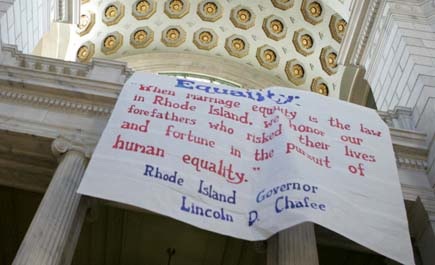 Equality:
"When marriage equality is the law
in Rhode Island, we honor our
forefathers who risked their lives
and fortune in the pursuit of
human equality."
Rhode Island Governor
Lincoln D. Chafee